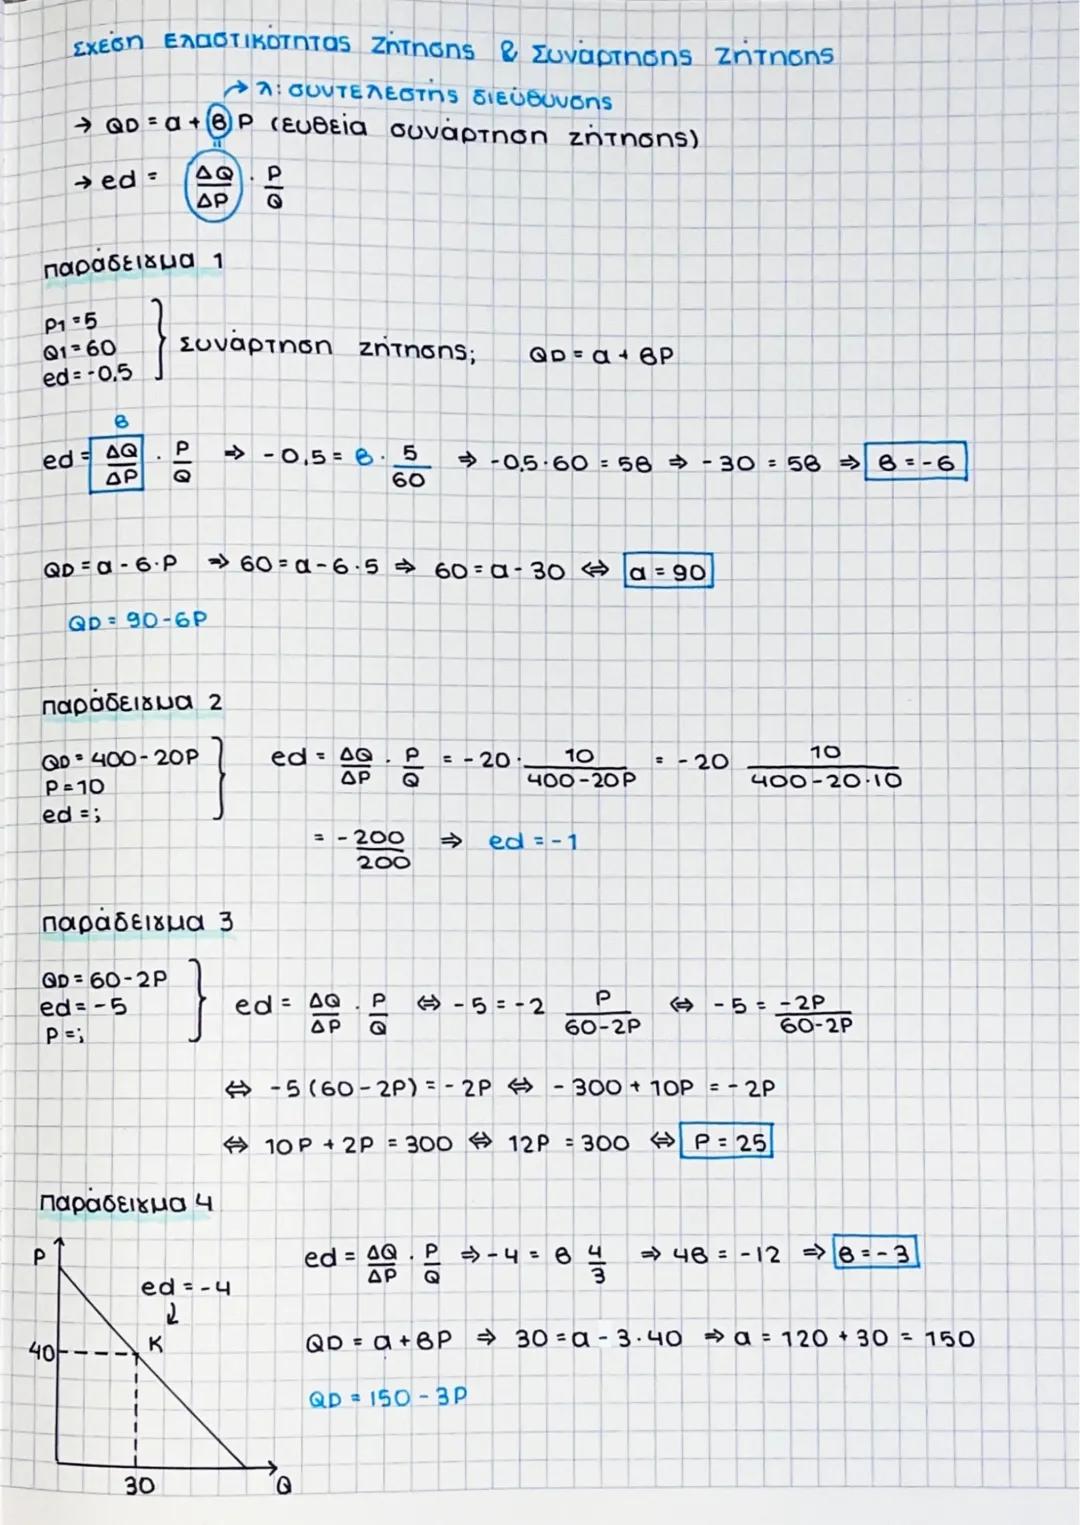 Σχέση Ελαστικότητας Ζήτησης & Συνάρτησης Ζήτησης
→ λ: συντελεστής διεύθυνσης
→ QD = α + β P (ευθεία συνάρτηση ζήτησης)
→ ed = ΔQ/ΔP · P/Q
παράδειγμα 1
P1 = 5
Q1 = 60
ed = -0,5
Συνάρτηση ζήτησης; QD = α + βP
β
ed = ΔQ/ΔP · P/Q ⇒ -0,5 = β · 5/60 ⇒ -0,5·60 = 5β ⇒ -30 = 5β ⇒ β = -6
QD = α - 6·P ⇒ 60 = α - 6·5 ⇒ 60 = α - 30 ⇔ α = 90
QD = 90 - 6P
παράδειγμα 2
QD = 400 - 20P
P = 10
ed = ;
ed = ΔQ/ΔP · P/Q = -20 · 10/400-20P = -20 10/400-20·10
= -200/200 ⇒ ed = -1
παράδειγμα 3
QD = 60 - 2P
ed = -5
P = ;
ed = ΔQ/ΔP · P/Q ⇔ -5 = -2 P/60-2P ⇔ -5 = -2P/60-2P
⇔ -5 (60 - 2P) = -2P ⇔ -300 + 10P = -2P
⇔ 10P + 2P = 300 ⇔ 12P = 300 ⇔ P = 25
παράδειγμα 4
P
ed = -4
K
40
30
Q
ed = ΔQ/ΔP · P/Q ⇒ -4 = β 4/3 ⇒ 4β = -12 ⇒ β = -3
QD = α + βP ⇒ 30 = α - 3·40 ⇒ α = 120 + 30 = 150
QD = 150 - 3P